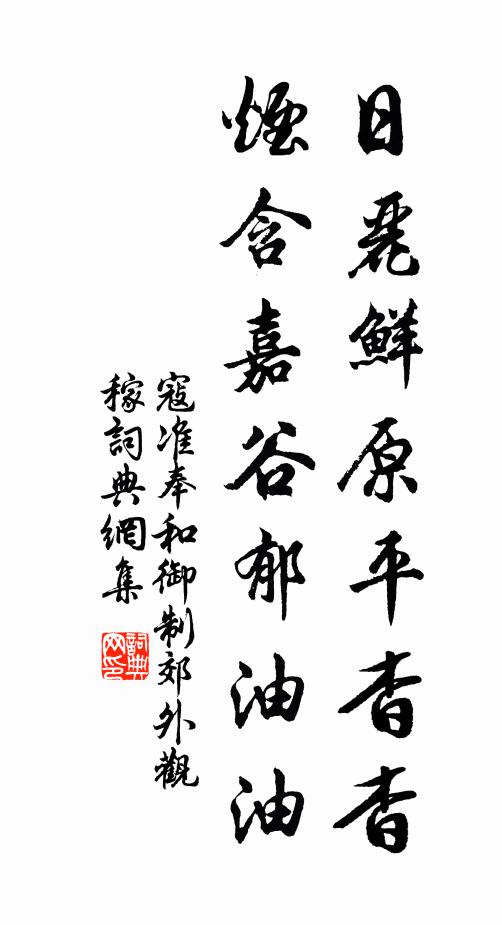 日麗鮮原平杳杳
煙含嘉谷郁油油
寇准奉和御制郊外觀
稼詞典網集
詞典網印